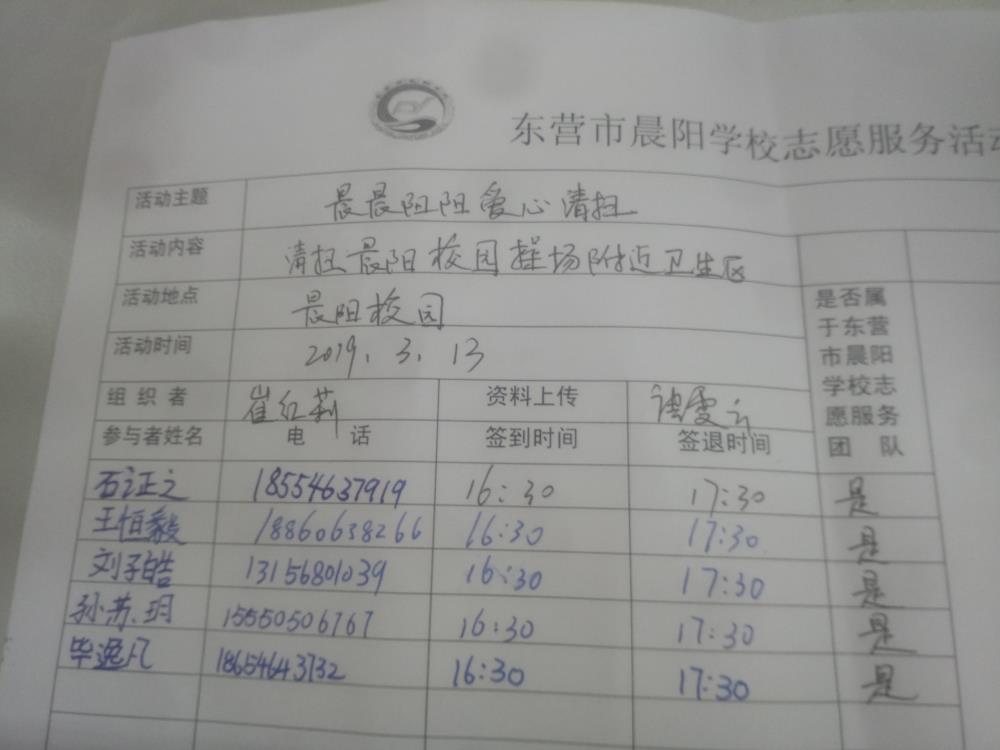 东营市晨阳学校志愿服务活动
活动主题 晨晨阳阳爱心清扫
活动内容 清扫晨阳校园操场附近卫生区
活动地点 晨阳校园
活动时间 2019.3.13
是否属于东营市晨阳学校志愿服务团队
组织者 崔红莉 资料上传
参与者姓名 电话 签到时间 签退时间
石证之 18554637919 16:30 17:30 是
王恒毅 18860638266 16:30 17:30 是
刘子皓 13156801039 16:30 17:30 是
孙苏玥 15550506767 16:30 17:30 是
毕逸凡 18654643732 16:30 17:30 是